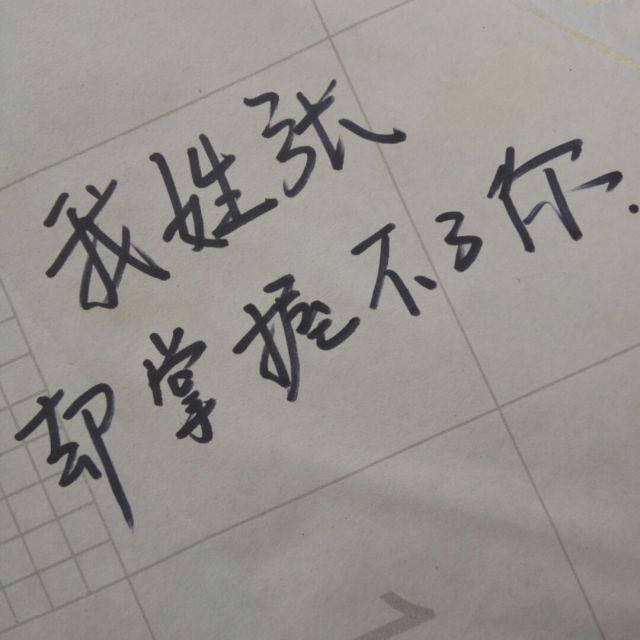 我姓张
却掌握不了你.